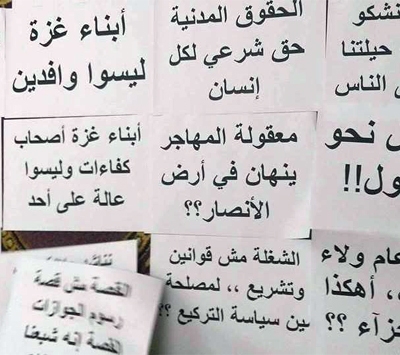 أبناء غزة
ليسوا وافدين
الحقوق المدنية
حق شرعي لكل
إنسان
نشكو
حيلتنا
الناس
أبناء غزة أصحاب
كفاءات وليسوا
عالة على أحد
معقولة المهاجر
ينهان في أرض
الأنصار؟؟
نحو
!!
القصة مش قصة
رسوم الجوازات
القصة إنه شبعنا
الشغلة مش قوانين
وتشريع ،، لمصلحة
مين سياسة التركيع ؟؟
عام ولاء
،، أهكذا
؟؟